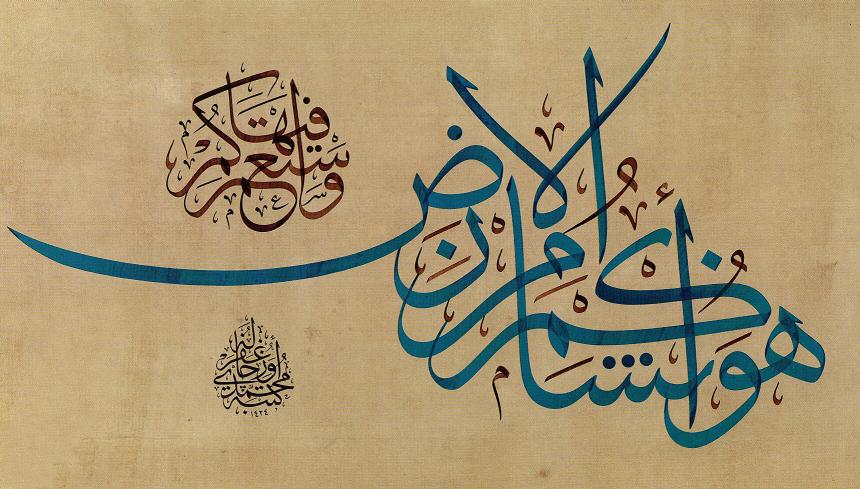 هُوَ أَنشَأَكُم مِّنَ الْأَرْضِ
وَاسْتَعْمَرَكُمْ فِيهَا
كتبه محمد
١٤٣٤